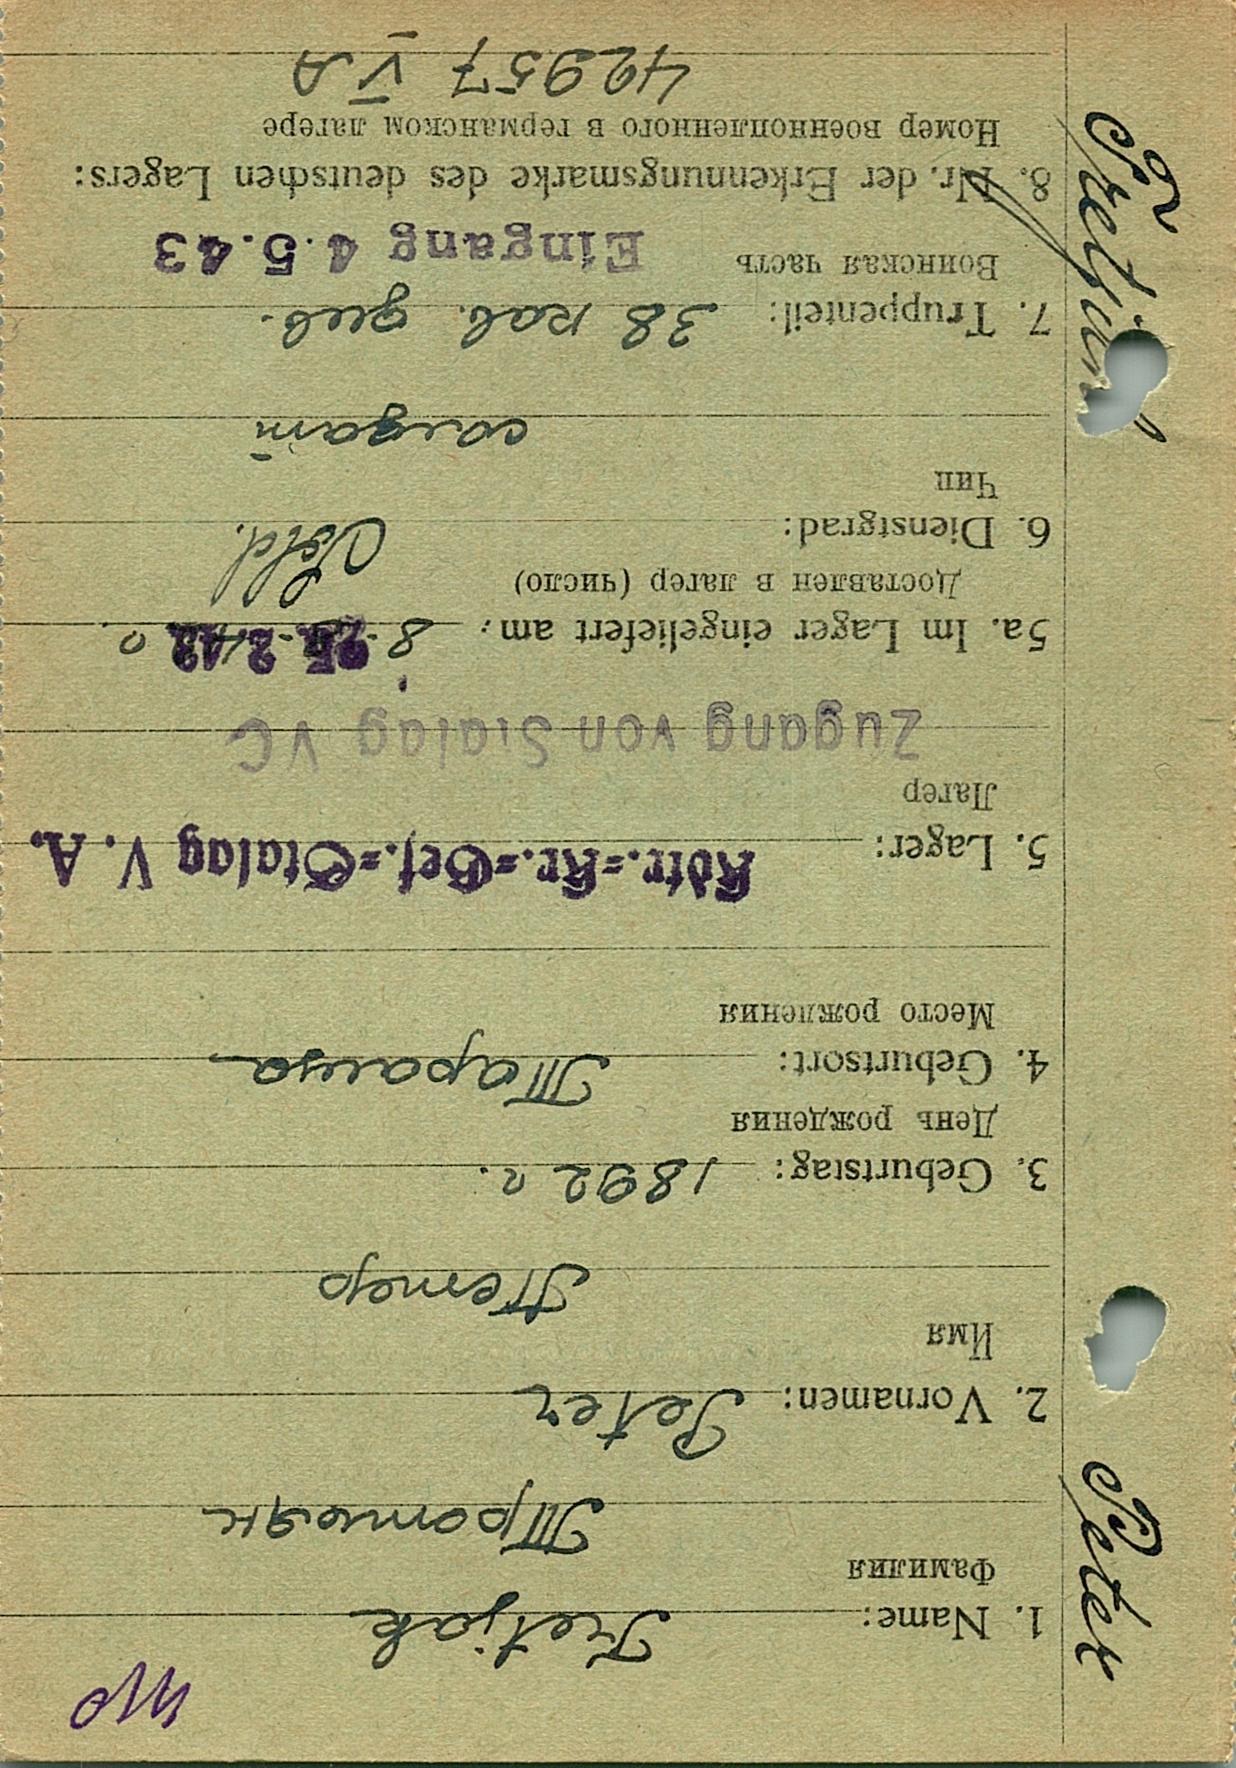 1. Name: Tretjak
Фамилия
Третьяк
2. Vornamen: Peter
Имя
Петер
3. Geburtstag: 1892 г.
День рождения
4. Geburtsort: Тараща
Место рождения
5. Lager: Kdtr.=Kr.=Gef.=Stalag V. A.
Лагерь
Zugang von Stalag VC
5a. Im Lager eingeliefert am: 8.
Доставлен в лагер (число)
Sold.
6. Dienstgrad:
Чин
солдат
7. Truppenteil: 38 кав. див.
Воинская часть
Eingang 4.5.43
8. Nr. der Erkennungsmarke des deutschen Lagers:
Номер военнопленного в германском лагере
42957 V A
Peter